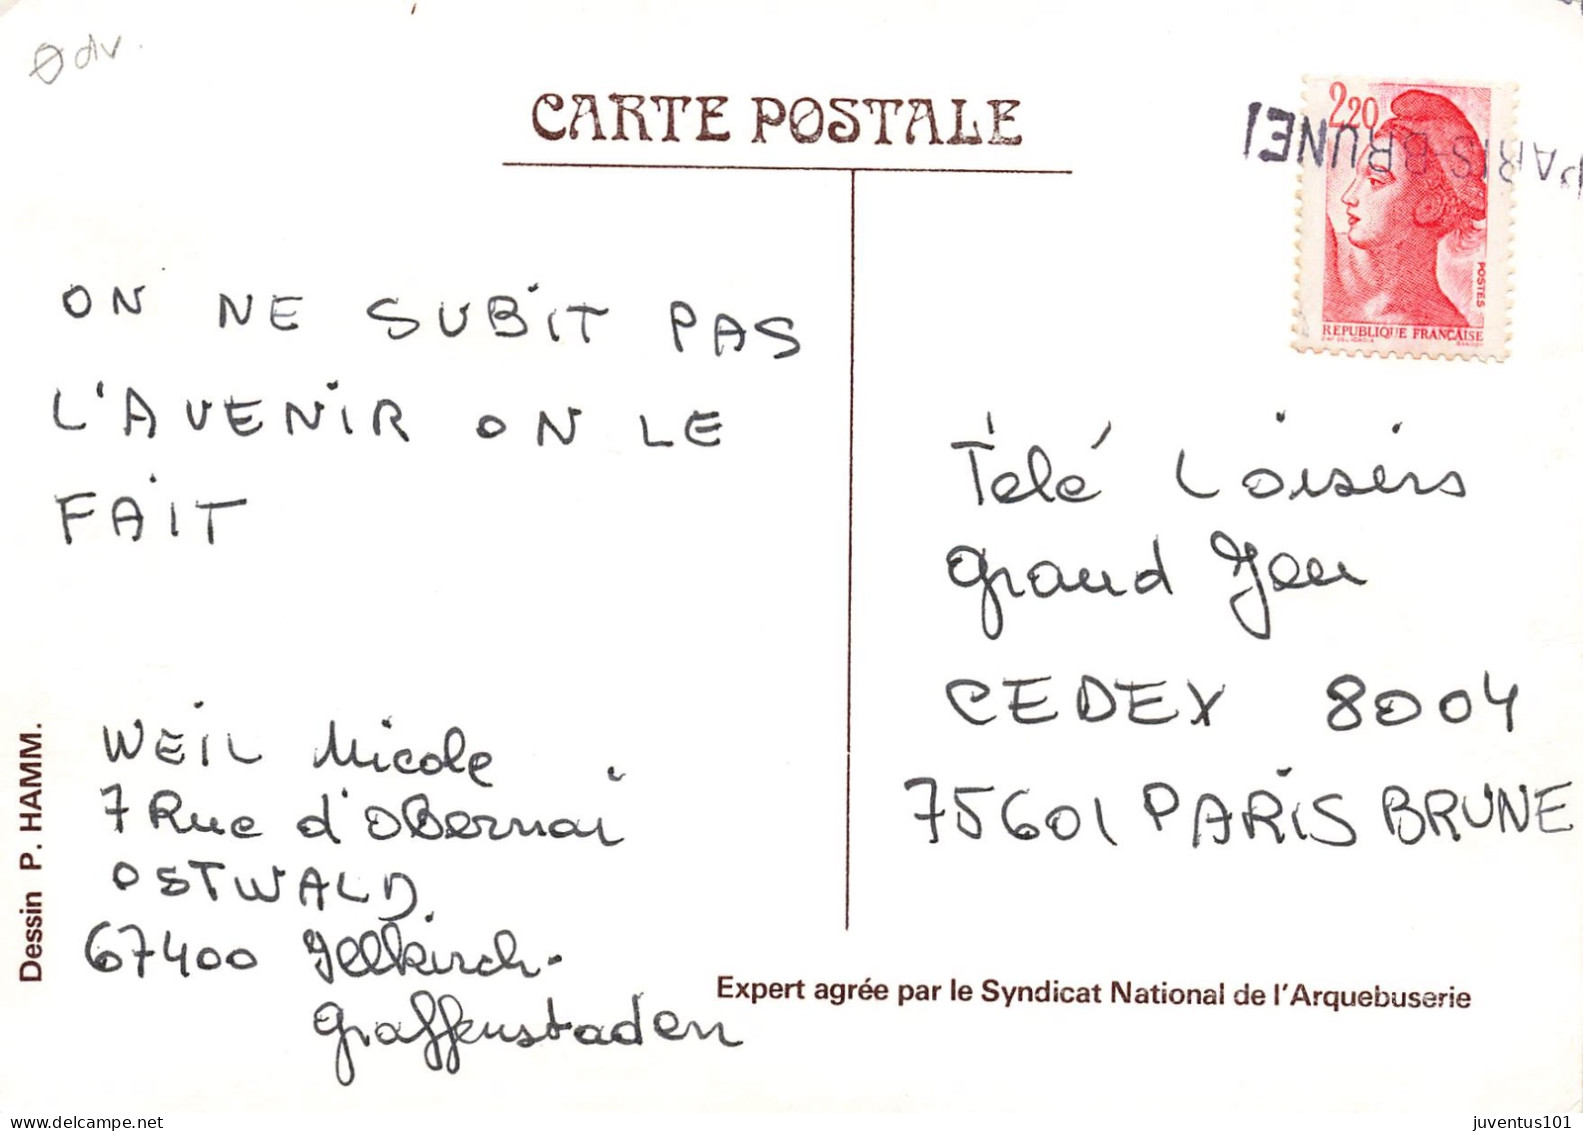 Ø div.
CARTE POSTALE
2,20
PARIS-BRUNE
POSTES
REPUBLIQUE FRANÇAISE
ON NE SUBIT PAS
L'AVENIR ON LE
FAIT
WEIL Nicole
7 Rue d'OBernai
OSTWALD.
67400 Illkirch-
Graffenstaden
Télé Loisirs
Grand Jeu
CEDEX 8004
75601 PARIS BRUNE
Dessin P. HAMM.
Expert agrée par le Syndicat National de l'Arquebuserie
delcampe.net
juventus101